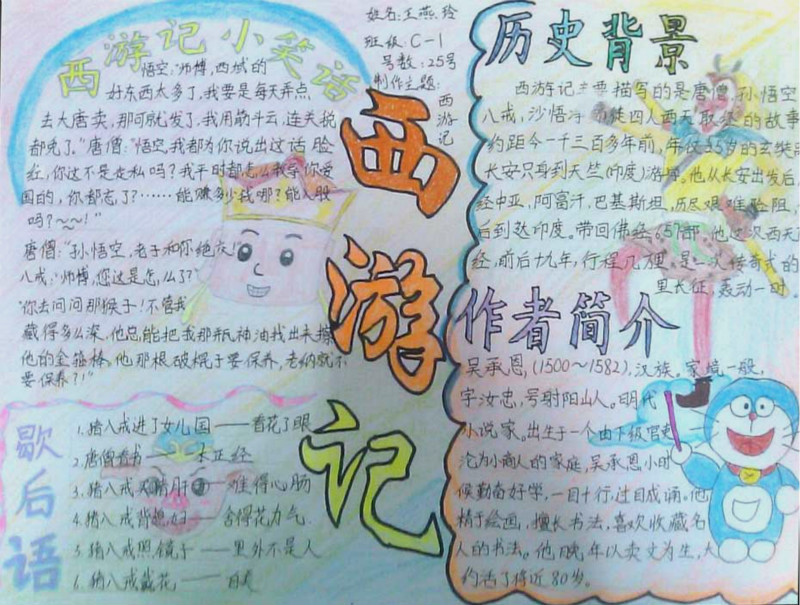 西游记小笑话
悟空:"师傅,西域的
好东西太多了,我要是每天弄点
去大唐卖,那可就发了,我用筋斗云,连关税
都免了。"唐僧:"悟空,我都为你说出这话脸
红,你这不是走私吗?我平时都怎么教导你爱
国的,你都忘了?……能赚多少我哪?能入股
吗?~~!"
唐僧:"孙悟空,老子和你绝交!"
八戒:"师傅,您这是怎么了?"
"你去问问那猴子!不管我
藏得多么深,他总能把我那瓶神油找出来擦
他的金箍棒。他那根破棍子要保养,老纳就不
要保养?!"
歇后语
1.猪八戒进了女儿国——看花了眼
2.唐僧看书——本正经
3.猪八戒——难得心肠
4.猪八戒背媳妇——舍得花力气
5.猪八戒照镜子——里外不是人
6.猪八戒戴花——自美
西游记
姓名:王燕玲
班级:C-1
号数:25号
制作主题:
西游记
历史背景
西游记主要描写的是唐僧,孙悟空
八戒,沙悟净师徒四人西天取经的故事
约距今一千三百多年前,年仅25岁的玄奘
长安只身到天竺(印度)游学。他从长安出发后,
经中亚,阿富汗,巴基斯坦,历尽艰难险阻,
后到达印度。带回佛经657部,他这次西天
经,前后十九年,行程几万里,是一次传奇式的
里长征,轰动一时。
作者简介
吴承恩,(1500~1582),汉族。家境一般,
字汝忠,号射阳山人。明代
小说家。出生于一个由下级官吏
沦为小商人的家庭,吴承恩小时
候勤奋好学,一目十行,过目成诵,他
精于绘画,擅长书法,喜欢收藏名
人的书法。他晚年以卖文为生,大
约活了将近80岁。